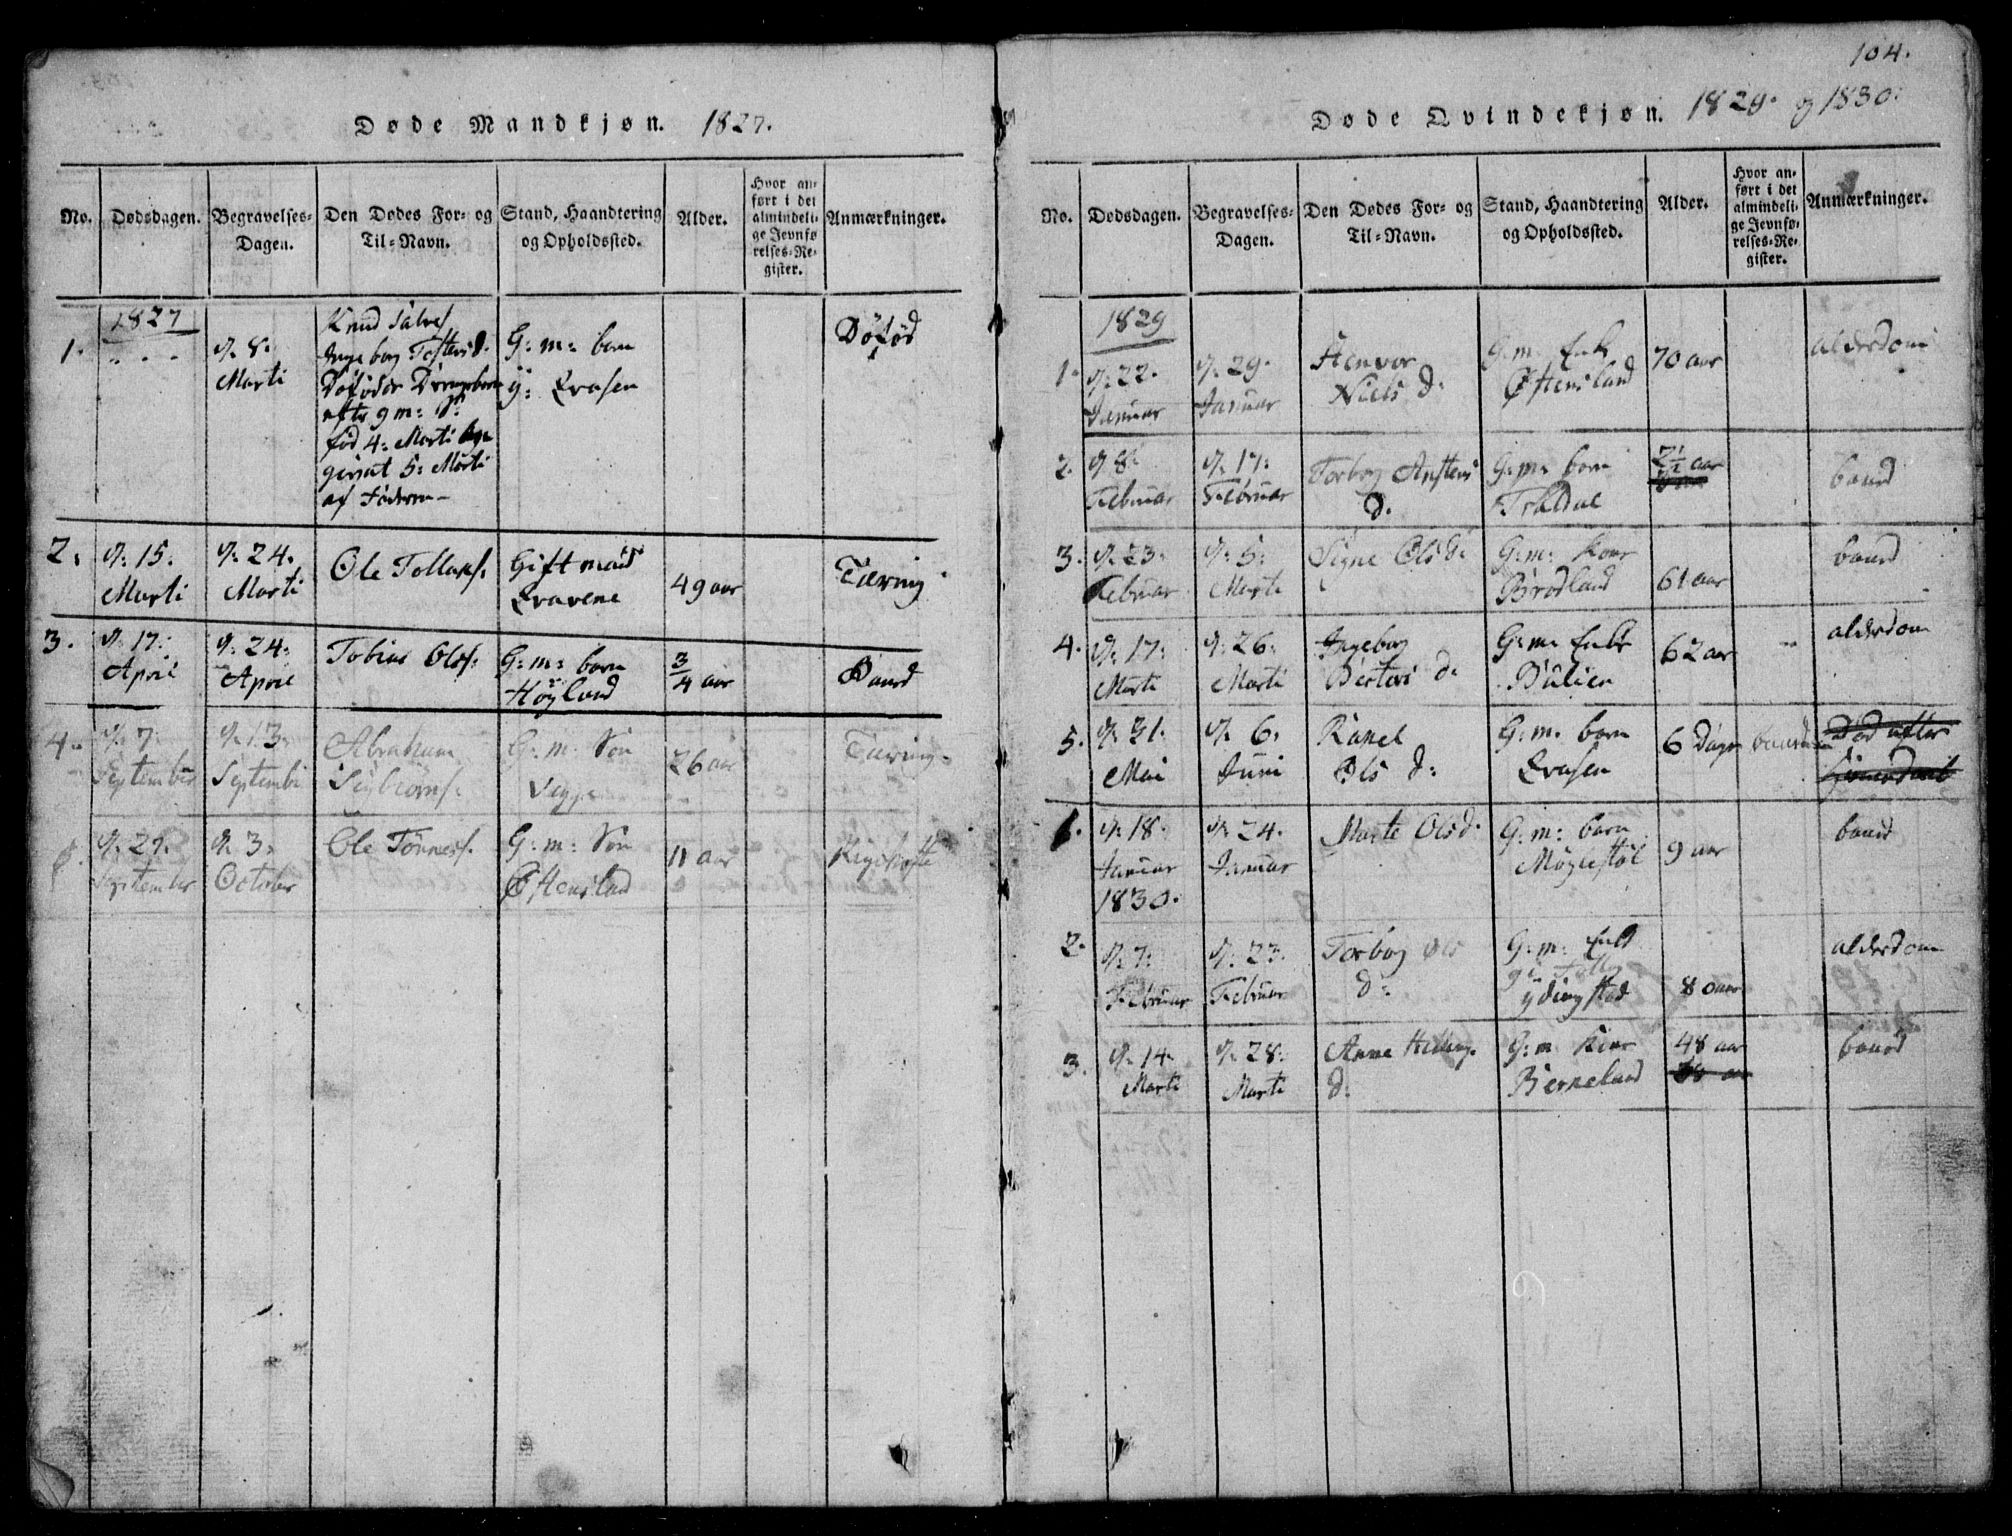 Døde Mandkjøn. 1827.
No.
Dødsdagen.
Begravelses-
Dagen.
Den Dødes For- og
Til-Navn.
Stand, Haandtering
og Opholdssted.
Alder.
Hvor an-
ført i det
almindeli-
ge Jevnfø
relses-Re-
gister.
Anmærkninger.
1827
1.
d: 8:
Marti
Knud Salves
Ingebog Tostensd.
Døfødde Drengebarn
født 4: Marti
5: Marti
af Faderen
G: m: barn
Qvasen
Døfød
2.
d: 15:
Marti
d: 24:
Marti
Ole Tollaks:
Gift mand
Qvavene
49 aar
Tæring
3.
d: 17:
April
d: 24:
April
Tobias Ols:
G: m: barn
Høyland
3/4 aar
Baard
4.
d: 7:
September
d: 13:
September
Abraham
Seybiørns:
G: m: Søn
26 aar
Tæring
d: 27:
September
d: 3:
October
Ole Tønnes:
G: m: Søn
Øftensland
11 aar
104.
Døde Qvindekjøn. 1829. og 1830.
No.
Dødsdagen.
Begravelses-
Dagen.
Den Dødes For- og
Til-Navn.
Stand, Haandtering
og Opholdssted.
Alder.
Hvor an-
ført i det
almindeli-
ge Jevnfø-
relses-Re-
gister.
Anmærkninger.
1829
1.
d: 22.
Januar
d: 29.
Januar
Stenvor
Niels d.
G: m. Enk
Øftensland
70 aar
alderdom
2.
d: 8:
Februar
d: 17:
Februar
Torbog Anstens
d.
G: m: barn
Traldal
2 1/2 aar
baard
3.
d: 23:
Februar
d: 5:
Marti
Signe Ols d:
G: m: Kone
Brødland
61 aar
baard
4.
d: 17:
Marti
d: 26:
Marti
Ingebog
d:
G: m: Enke
62 aar
alderdom
5.
d: 31.
Mai
d: 6:
Juni
Ranel
Ols d:
G: m. barn
Qvasen
6 Dage
Død efter
d: 18.
Januar
1830.
d: 24.
Januar
Marte Ols d.
G: m: barn
Møglestøl
9 aar
baard
2.
d: 7:
Februar
d: 23.
Februar
Torbog Ols
d:
G: m: Enke
Ydingstad
80 aar
alderdom
3.
d: 14.
Marti
d: 28:
Marti
Anne
d:
G: m Kone
Berneland
48 aar
baard